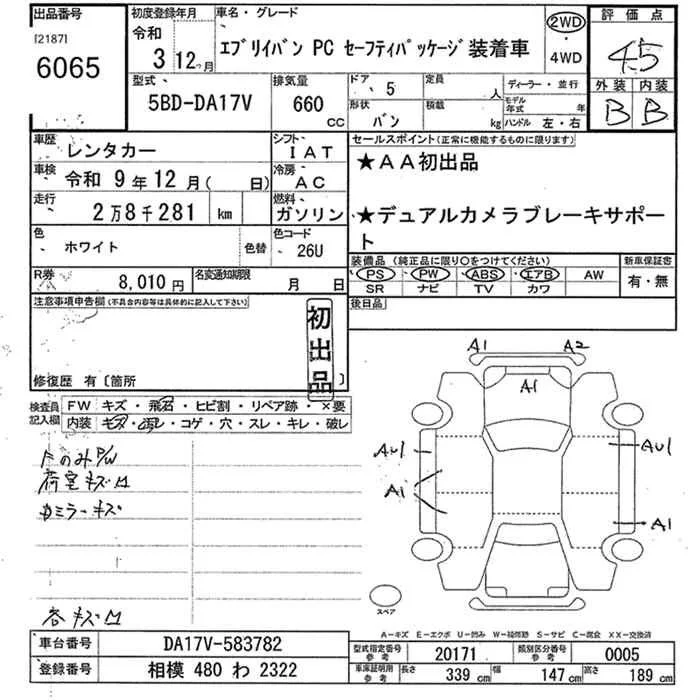 出品番号
[2187]
6065
初度登録年月
令和
3 12ヶ月
車名・グレード
エブリイバン PC セーフティパッケージ装着車
2WD
・
4WD
評価点
4.5
外装 内装
B B
型式
5BD-DA17V
排気量
660
CC
ドア
5
定員
人
ディーラー・並行
形状
バン
積載
kg
モデル年式 年
ハンドル 左・右
車歴
レンタカー
シフト
IAT
車検
令和 9年12月( 日)
冷房
AC
走行
2万8千281 km
燃料
ガソリン
色
ホワイト
色替
色コード
26U
R券
8,010円
名変通知期限
月 日
セールスポイント(正常に機能するものに限ります)
★AA初出品
★デュアルカメラブレーキサポート
装備品(純正品に限り○をつけてください)
PS PW ABS エアB AW
SR ナビ TV カワ
新車保証書
有・無
後日品
注意事項申告欄(不具合内容等は具体的に記入して下さい)
初出品
修復歴 有〔箇所 〕
検査員記入欄
FW キズ・飛石・ヒビ割・リペア跡・×要
内装 キズ・汚レ・コゲ・穴・スレ・キレ・破レ
FのみP/W
荷室キズ凹
カミラーキズ
各キズ凹
A1 A2
A1
AU1 AU1
A1
A1
スペア
A-キズ E-エクボ U-凹み W-補修跡 S-サビ C-腐食 XX-交換済
車台番号
DA17V-583782
登録番号
相模 480 わ 2322
型式指定番号
参考
20171
類別区分番号
参考
0005
車庫証明用
参考
長さ 339 cm 幅 147 cm 高さ 189 cm